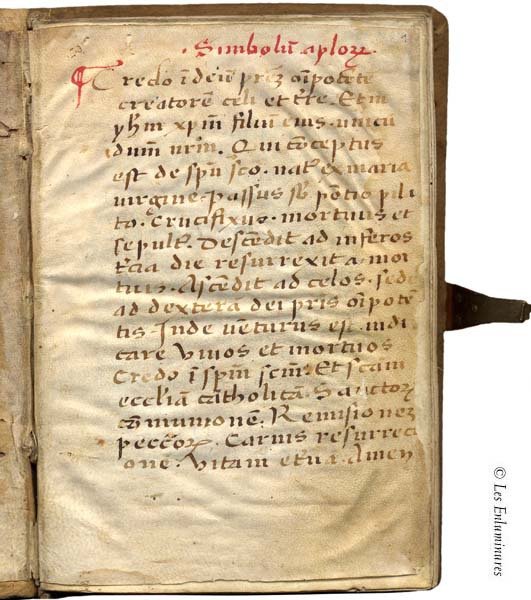 · Simbolū aplorꝝ ·
¶ Credo ī deū prēz oīpotēte
creatorē celi et tr̄e. Et in
yhm xpm̄ filiū eius · unicū
dūm nrm̄. Qui cōceptus
est de spū sc̄o · nat᷒ ex maria
virgine · passus sb̄ pōtio pila
to · Crucifixus · mortuus et
sepult᷒. Descēdit ad inferos
t̄cia die resurrexit a mor
tuis. Ascēdit ad celos · sedet
ad dexterā dei pr̄is oīpotē
tis Inde vēturus est · iudi
care vivos et mortuos
Credo ī spm̄ scm̄. Et scam̄
eccl̄iā catholicā. Sanctorꝝ
cōmunionē. Remisionez
pecctorꝝ. Carnis resurrecti
one. Vitam et̄na. Amen
© Les Enluminures